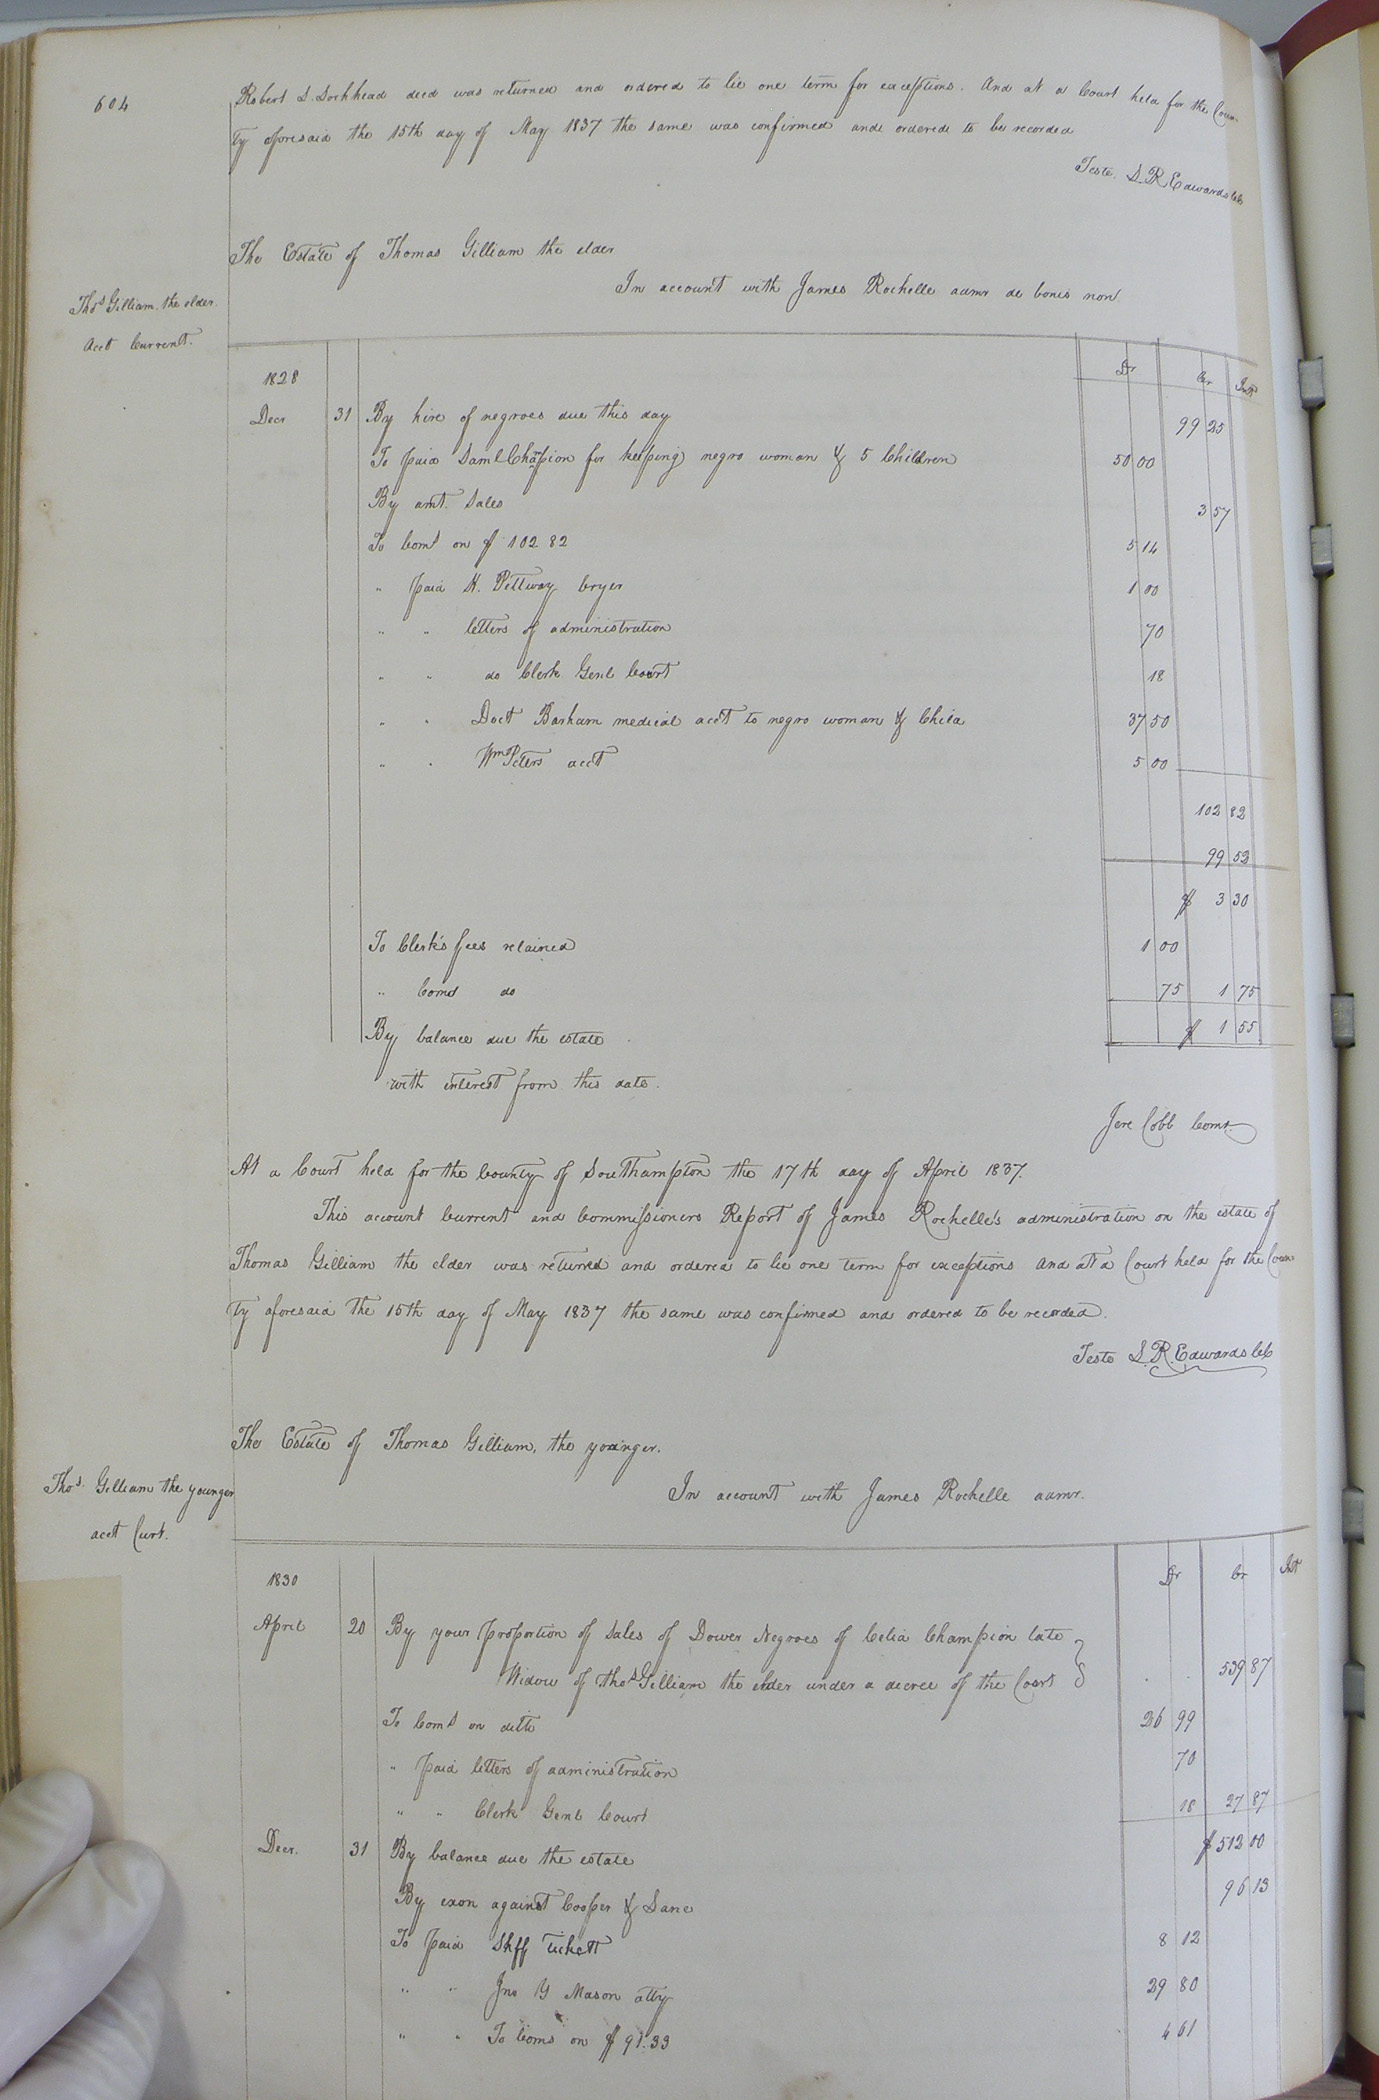 604
Robert S. Lochhead decd was returned and ordered to lie one term for exceptions. And at a Court held for the Coun-
ty aforesaid the 15th day of May 1837 the same was confirmed and ordered to be recorded
Teste. S. R. Edwards Clk
The Estate of Thomas Gilliam the elder
In account with James Rochelle admr de bonis non.
Thos Gilliam the elder.
Acct Current.
1828 Dr Cr Int
Decr 31 By hire of negroes due this day 99 25
To paid Saml Champion for keeping negro woman & 5 Children 50 00
By amt. Sales 3 57
To Coms on $ 102 82 5 14
" paid H. Pettway Cryer 1 00
" " letters of administration 70
" " do Clerk Genl Court 18
" " Doct Barham medical acct to negro woman & Child 37 50
" " Wm Peters acct 5 00
102 82
99 52
$ 3 30
To Clerk's fees retained 1 00
" Comd do 75 1 75
By balance due the estate $ 1 55
with interest from this date.
Jere Cobb Comr.
At a Court held for the County of Southampton the 17th day of April 1837.
This account Current and Commissioners Report of James Rochelle's administration on the estate of
Thomas Gilliam the elder was returned and ordered to lie one term for exceptions And at a Court held for the Coun-
ty aforesaid the 15th day of May 1837 the same was confirmed and ordered to be recorded.
Teste S. R. Edwards Clk
The Estate of Thomas Gilliam, the younger.
In account with James Rochelle admr.
Thos. Gilliam the younger
acct Curt.
1830 Dr Cr Int
April 20 By your proportion of Sales of Dower Negroes of Celia Champion late
Widow of Thos Gilliam the elder under a decree of the Court 539 87
To Coms on ditto 26 99
" paid letters of administration 70
" " Clerk Genl Court 18 27 87
Decr. 31 By balance due the estate $ 512 00
By exon against Cooper & Lane 96 13
To paid Shff Tickett 8 12
" " Jno Y Mason atty 29 80
" " To Coms on $ 91.33 4 61